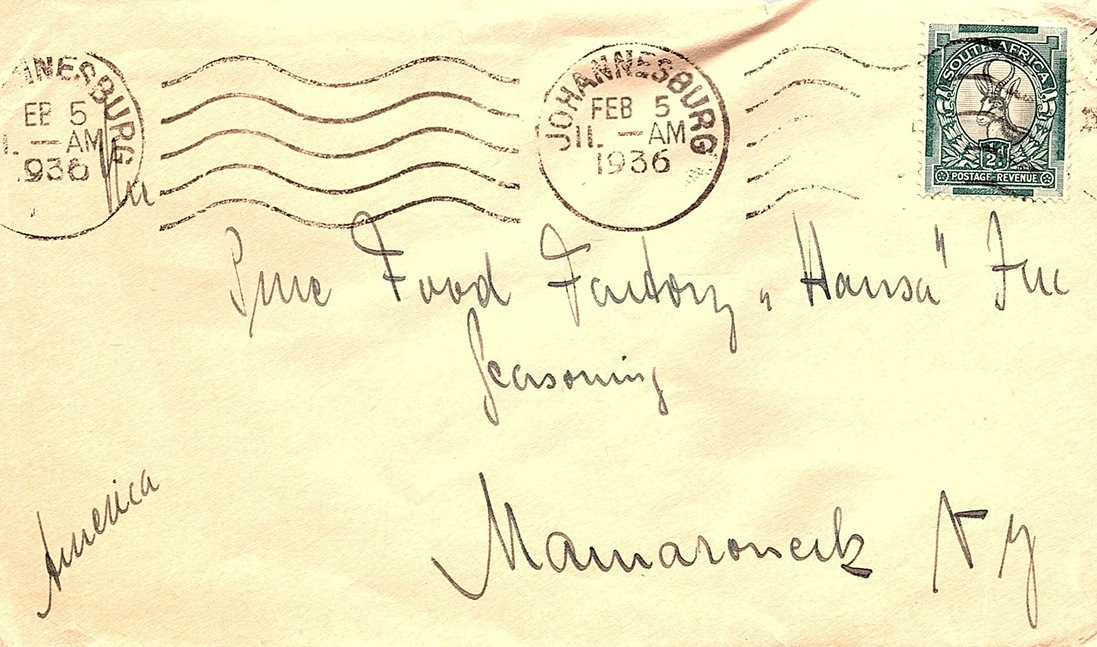 NNESBURG
EB 5
1. — AM
1936
JOHANNESBURG
FEB 5
11. — AM
1936
SOUTH AFRICA
½D
POSTAGE REVENUE
Pure Food Factory „Hansa" Inc
Seasoning
America
Mamaroneck N Y